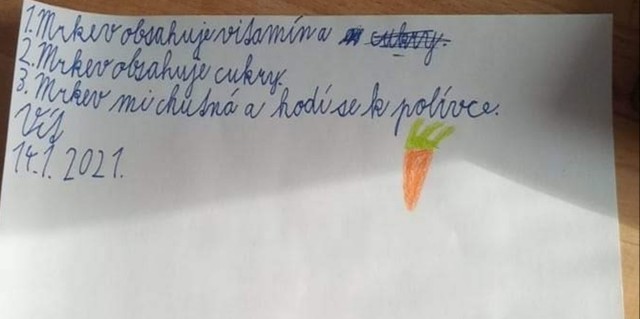 1. Mrkev obsahuje vitamín a cukry.
2. Mrkev obsahuje cukry.
3. Mrkev mi chutná a hodí se k polívce.
Vít
14.1. 2021.